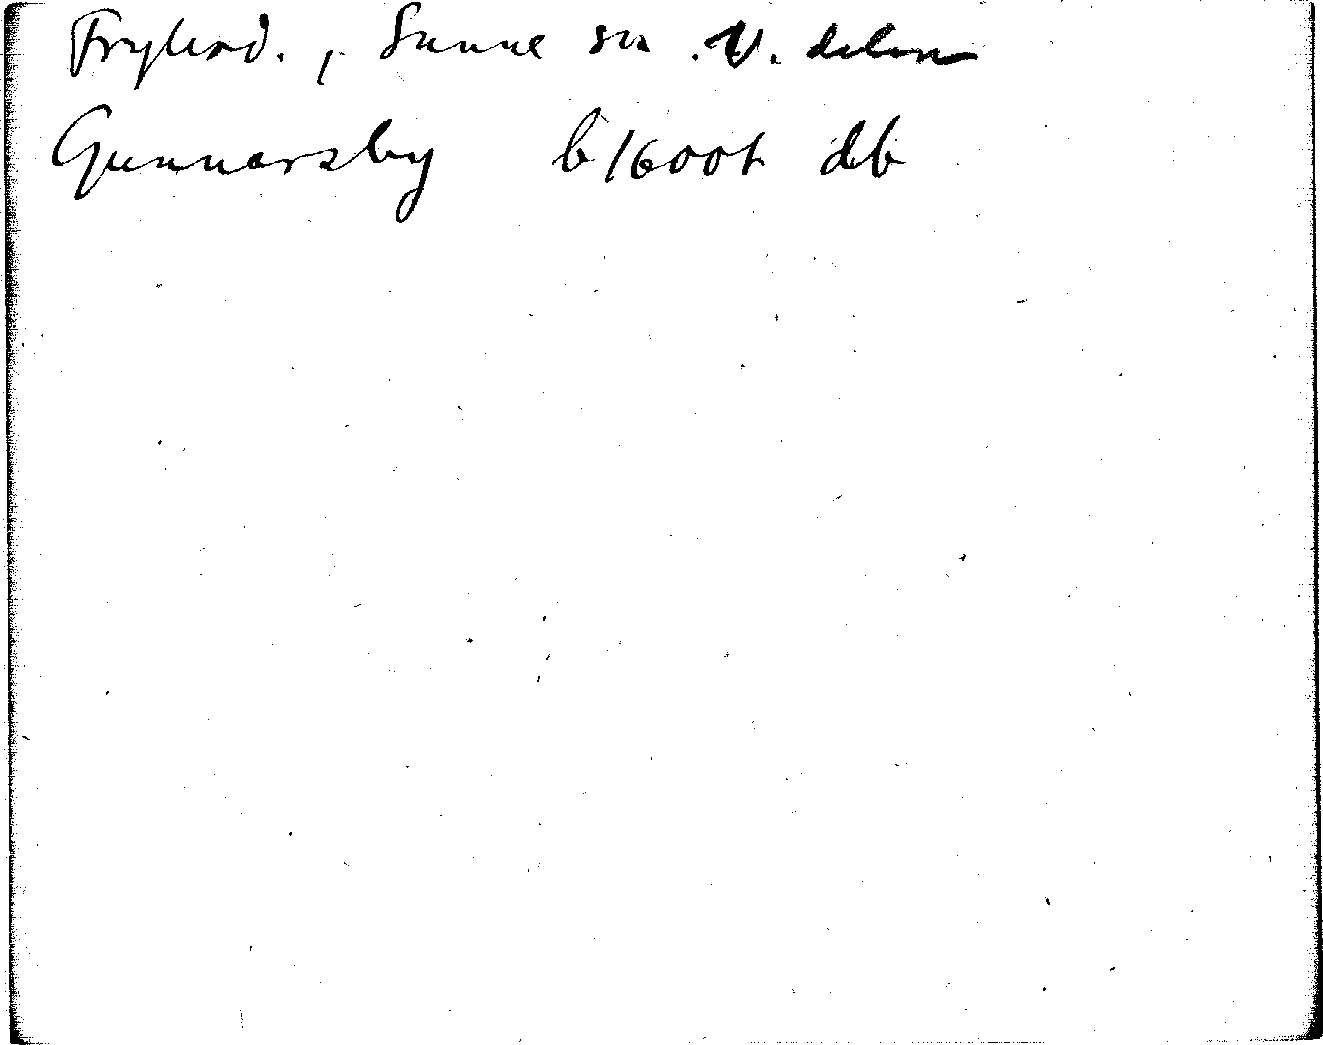 Fryksd., Sunne sn V. delen
Gunnarsby b/600t db